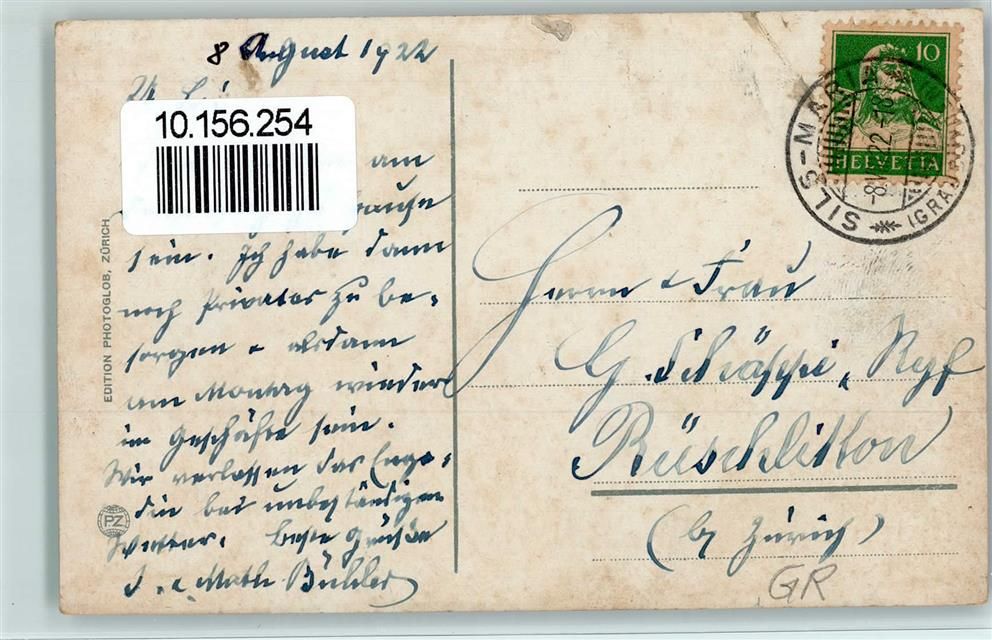 8 August 1922
10.156.254
am
sein. Ich habe dann
noch Privates zu be-
sorgen & alsdann
am Montag wieder
im Geschäfte sein.
Wir verlassen das Enga-
din bei unbeständigem
Wetter. Beste Grüsse
J. & Math Bühler
EDITION PHOTOGLOB, ZÜRICH
PZ
10
HELVETIA
SILS-MARIA
(GRA
-8.V 22.-18
Herrn & Frau
G. Schäppi, Ryf
Rüschlikon
(by Zürich)
GR